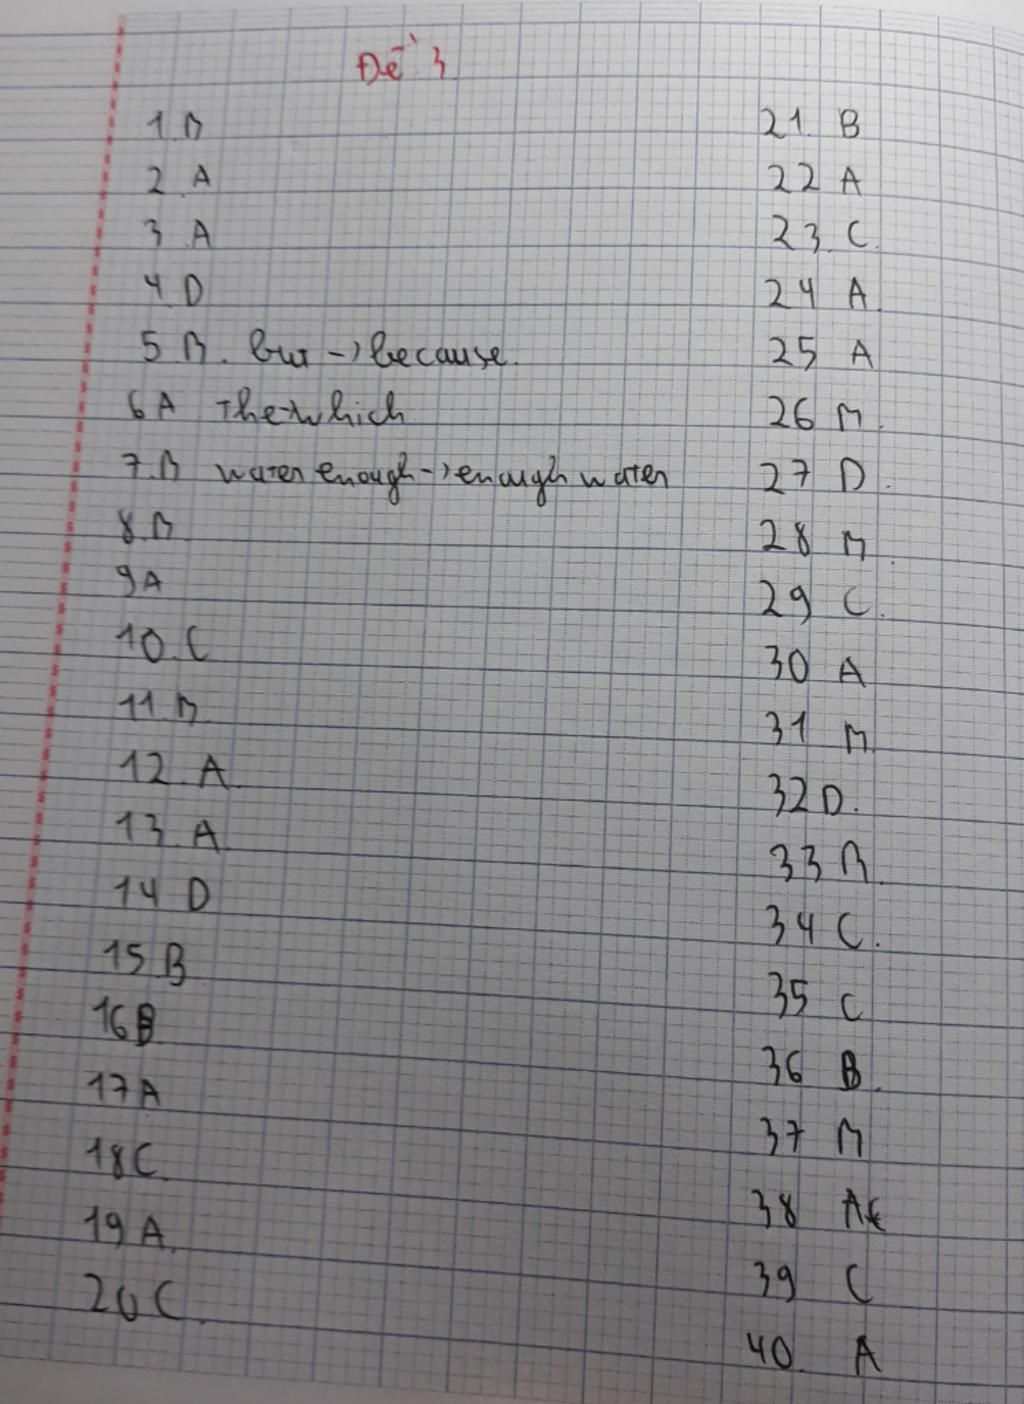 Đề 3
1 B
2 A
3 A
4 D
5 B. but -> because.
6 A The->which
7.B water enough -> enough water
8.B
9A
10.C
11 B
12 A
13 A
14 D
15 B
16B
17A
18C
19 A
20 C
21. B
22 A
23. C
24 A
25 A
26 B
27 D
28 B
29 C
30 A
31 B
32 D.
33 B
34 C.
35 C
36 B
37 B
38
39 C
40 A